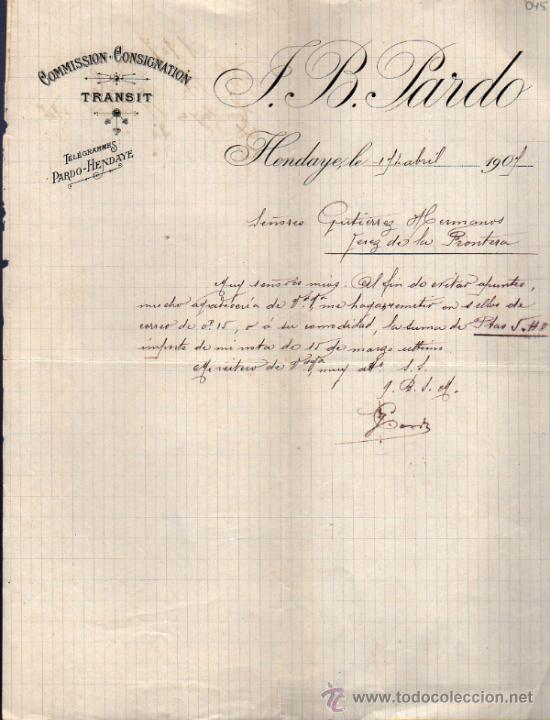 045
COMMISSION-CONSIGNATION
TRANSIT
TÉLÉGRAMMES
PARDO-HENDAYE
J. B. Pardo
Hendaye, le 17 abril 1907
Señores Gutiérrez Hermanos
Jerez de la Frontera
Muy señores mios: Al fin de evitar apuntes,
mucho agradeceria de Vds me hagan remetir en sellos de
correo de 0.15, o á su comodidad, la suma de Ptas 5.
importe de mi nota de 15 de marzo ultimo.
Me reitero de Vds muy atto S. S.
q. B. S. M.
www.todocoleccion.net